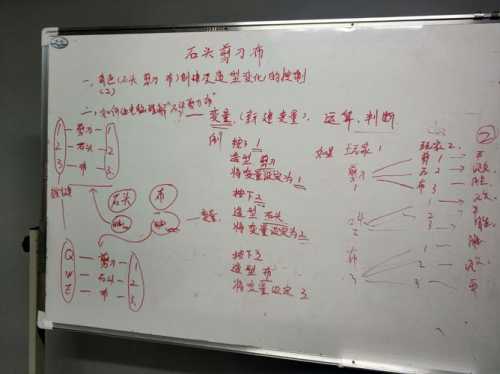 石头剪刀布
一、角色(石头 剪刀 布)创建及造型变化的控制
(2)
二、如何让电脑理解"石头剪刀布"
变量(新建变量)、运算、判断
1 — 剪刀 — 1
2 — 石头 — 2
3 — 布 — 3
石头
布
Q — 剪刀 — 1
W — 石头 — 2
Z — 布 — 3
例
按下1
造型 剪刀
将变量设定为1
按下2
造型 石头
将变量设定为2
按下3
造型 布
将变量设定 3
玩家1
玩家2
剪刀
1
剪 1
石 2
布 3
石头
2
1
2
3
布
3
1
2
3
2